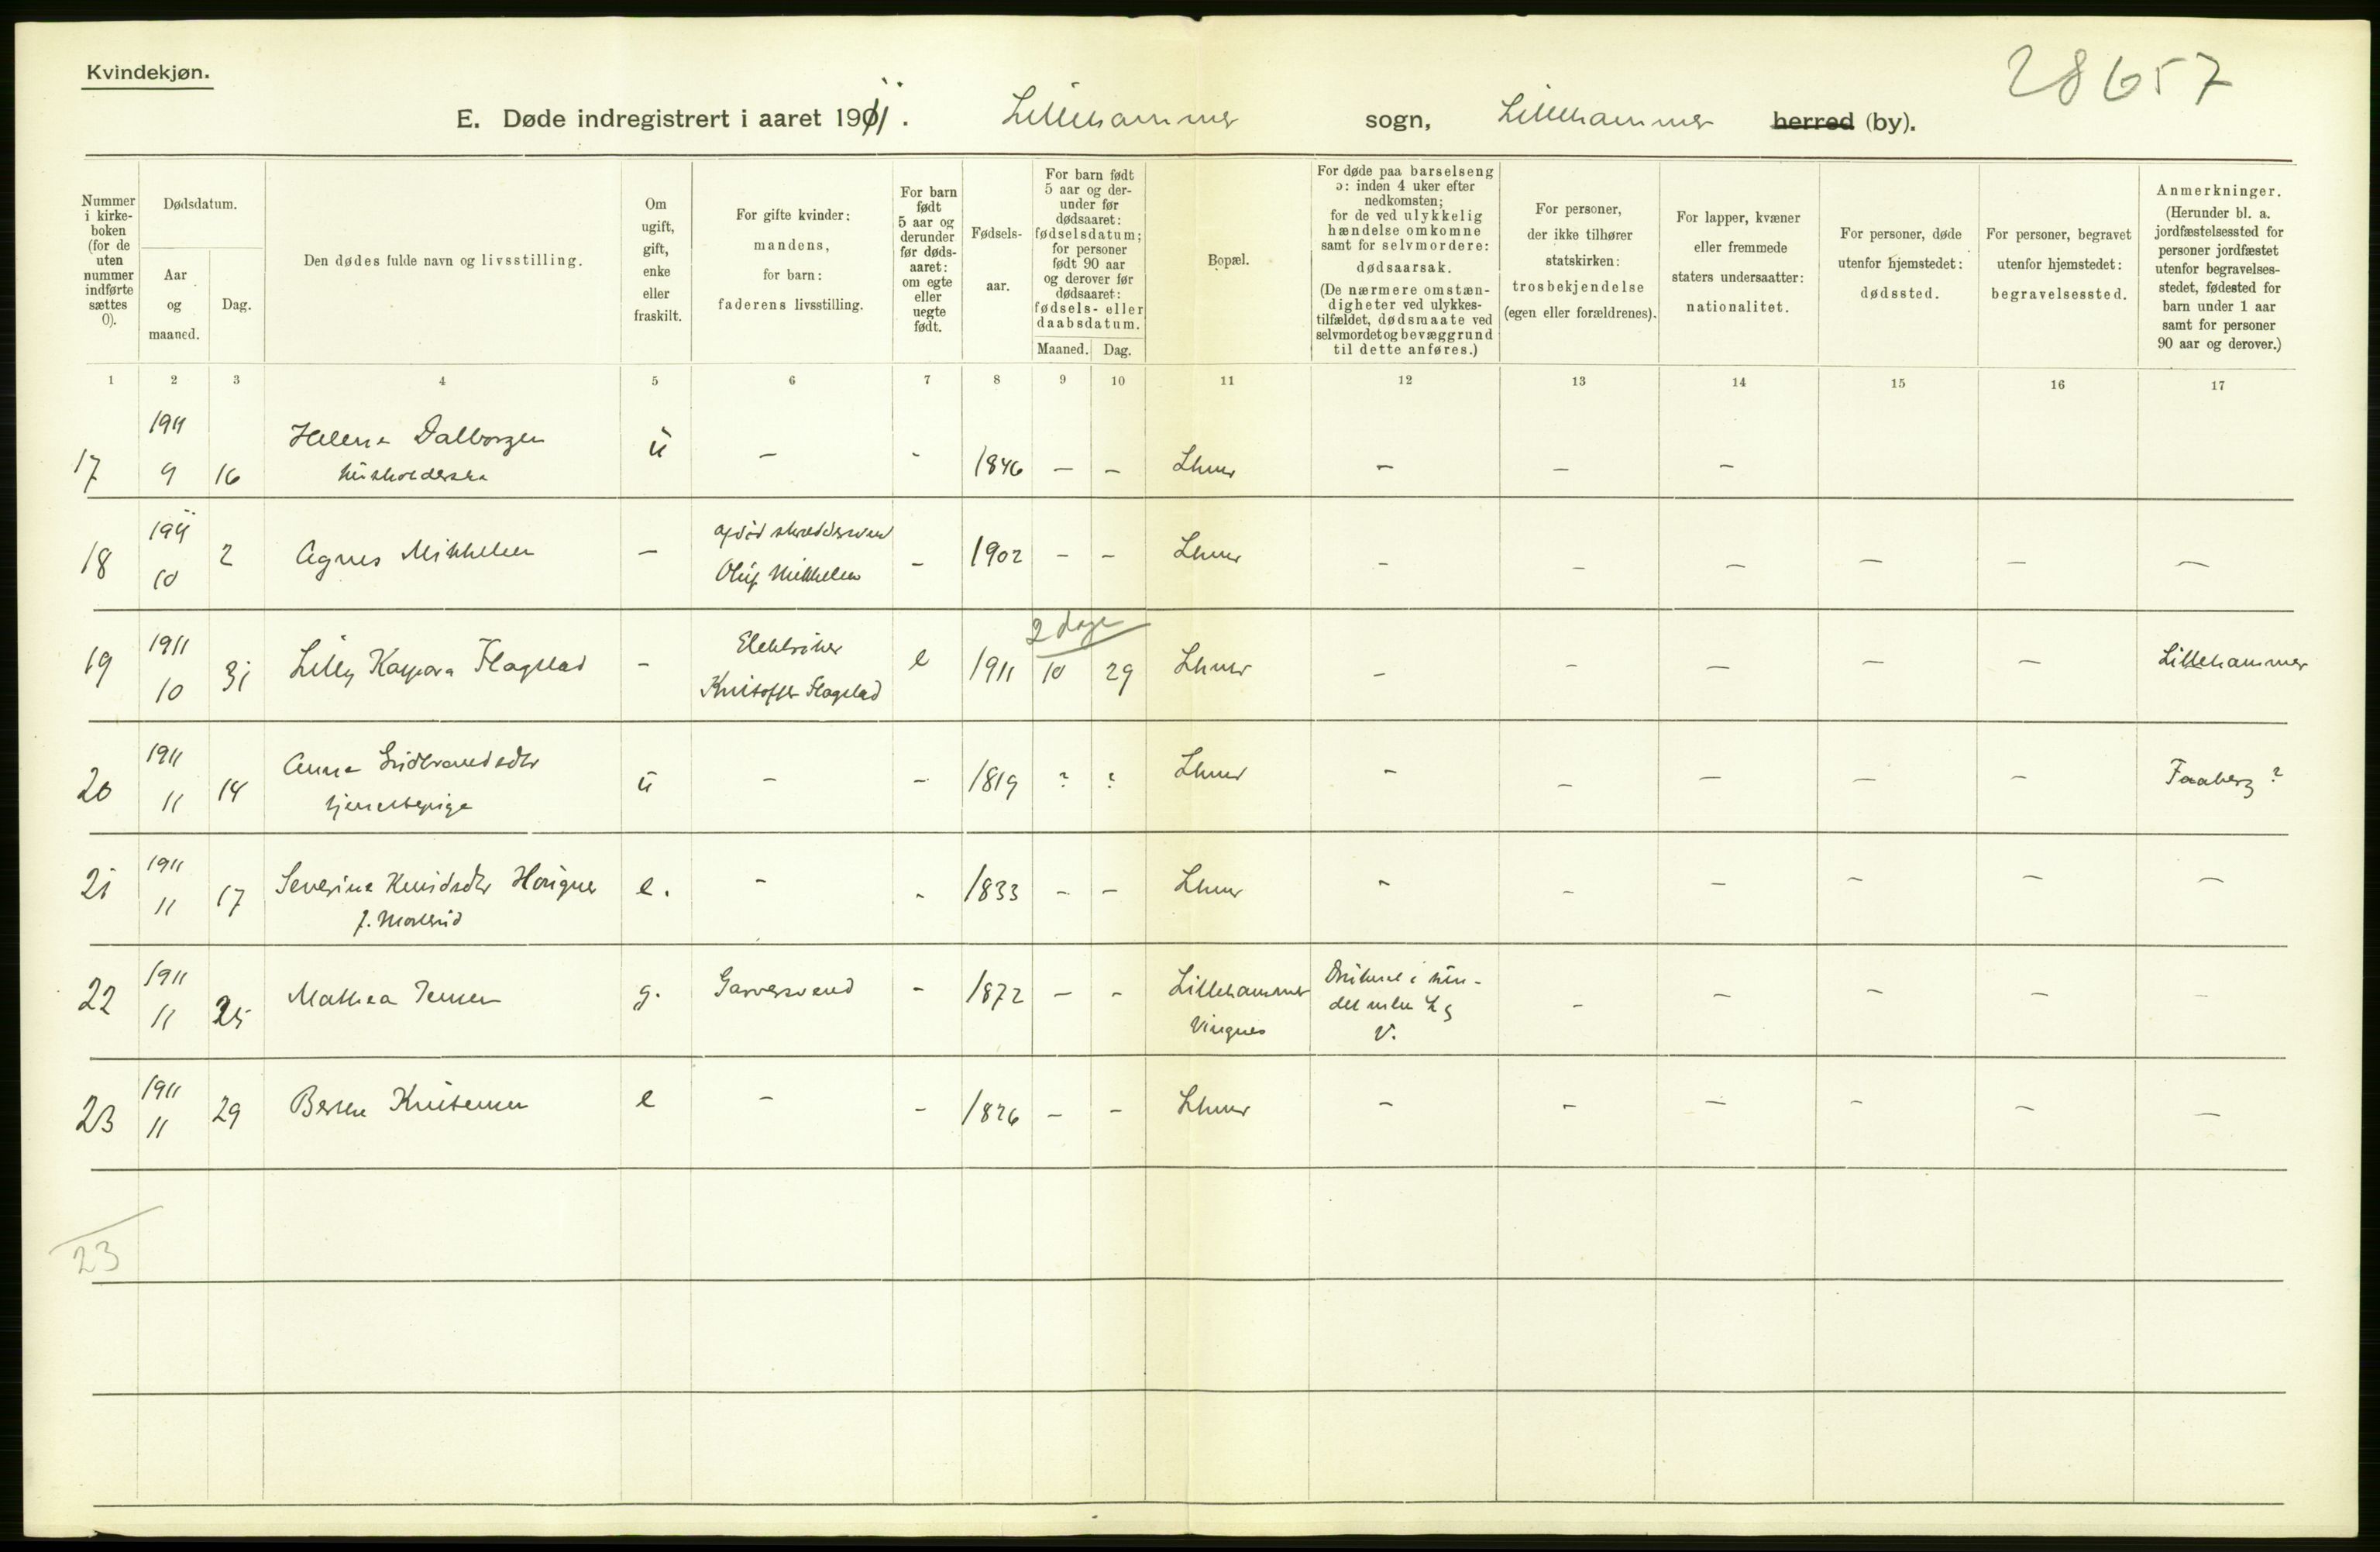 Kvindekjøn.
28657
E. Døde indregistrert i aaret 1911. Lillehammer sogn, Lillehammer herred (by).
Nummer i kirke- boken (for de uten nummer indførte sættes 0).
Dødsdatum.
Aar og maaned.
Dag.
Den dødes fulde navn og livsstilling.
Om ugift, gift, enke eller fraskilt.
For gifte kvinder: mandens, for barn: faderens livsstilling.
For barn født 5 aar og derunder før døds- aaret: om egte eller uegte født.
Fødsels- aar.
For barn født 5 aar og der- under før dødsaaret: fødselsdatum; for personer født 90 aar og derover før dødsaaret: fødsels- eller daabsdatum.
Maaned. Dag.
Bopæl.
For døde paa barselseng ɔ: inden 4 uker efter nedkomsten; for de ved ulykkelig hændelse omkomne samt for selvmordere: dødsaarsak. (De nærmere omstæn- digheter ved ulykkes- tilfældet, dødsmaate ved selvmordet og bevæggrund til dette anføres.)
For personer, der ikke tilhører statskirken: trosbekjendelse (egen eller forældrenes).
For lapper, kvæner eller fremmede staters undersaatter: nationalitet.
For personer, døde utenfor hjemstedet: dødssted.
For personer, begravet utenfor hjemstedet: begravelsessted.
Anmerkninger. (Herunder bl. a. jordfæstelsessted for personer jordfæstet utenfor begravelses- stedet, fødested for barn under 1 aar samt for personer 90 aar og derover.)
1 2 3 4 5 6 7 8 9 10 11 12 13 14 15 16 17
17 1911 9 16 Helene Dalborgen ü - - 1846 - - Lhmr - - -
husholderske
18 1911 10 2 Agnes Mikkelsen - afdød skreddersvend - 1902 - - Lhmr - - - - - -
Oluf Mikkelsen
2 dage
19 1911 10 31 Lilly Kaspara Flagstad - Elektriker e 1911 10 29 Lhmr - - - - - Lillehammer
Kristoffer Flagstad
20 1911 11 14 Anna Gudbrandsdtr ü - - 1819 ? ? Lhmr - - - - - Faaberg?
tjenestepige
21 1911 11 17 Severine Knudsdtr e. - - 1833 - - Lhmr - - - - - -
22 1911 11 25 Mathea Jensen g. Garversvend - 1872 - - Lillehammer Druknet i
Vingnes
V.
23 1911 11 29 Berthe e - - 1826 - - Lhmr - - - - - -
23